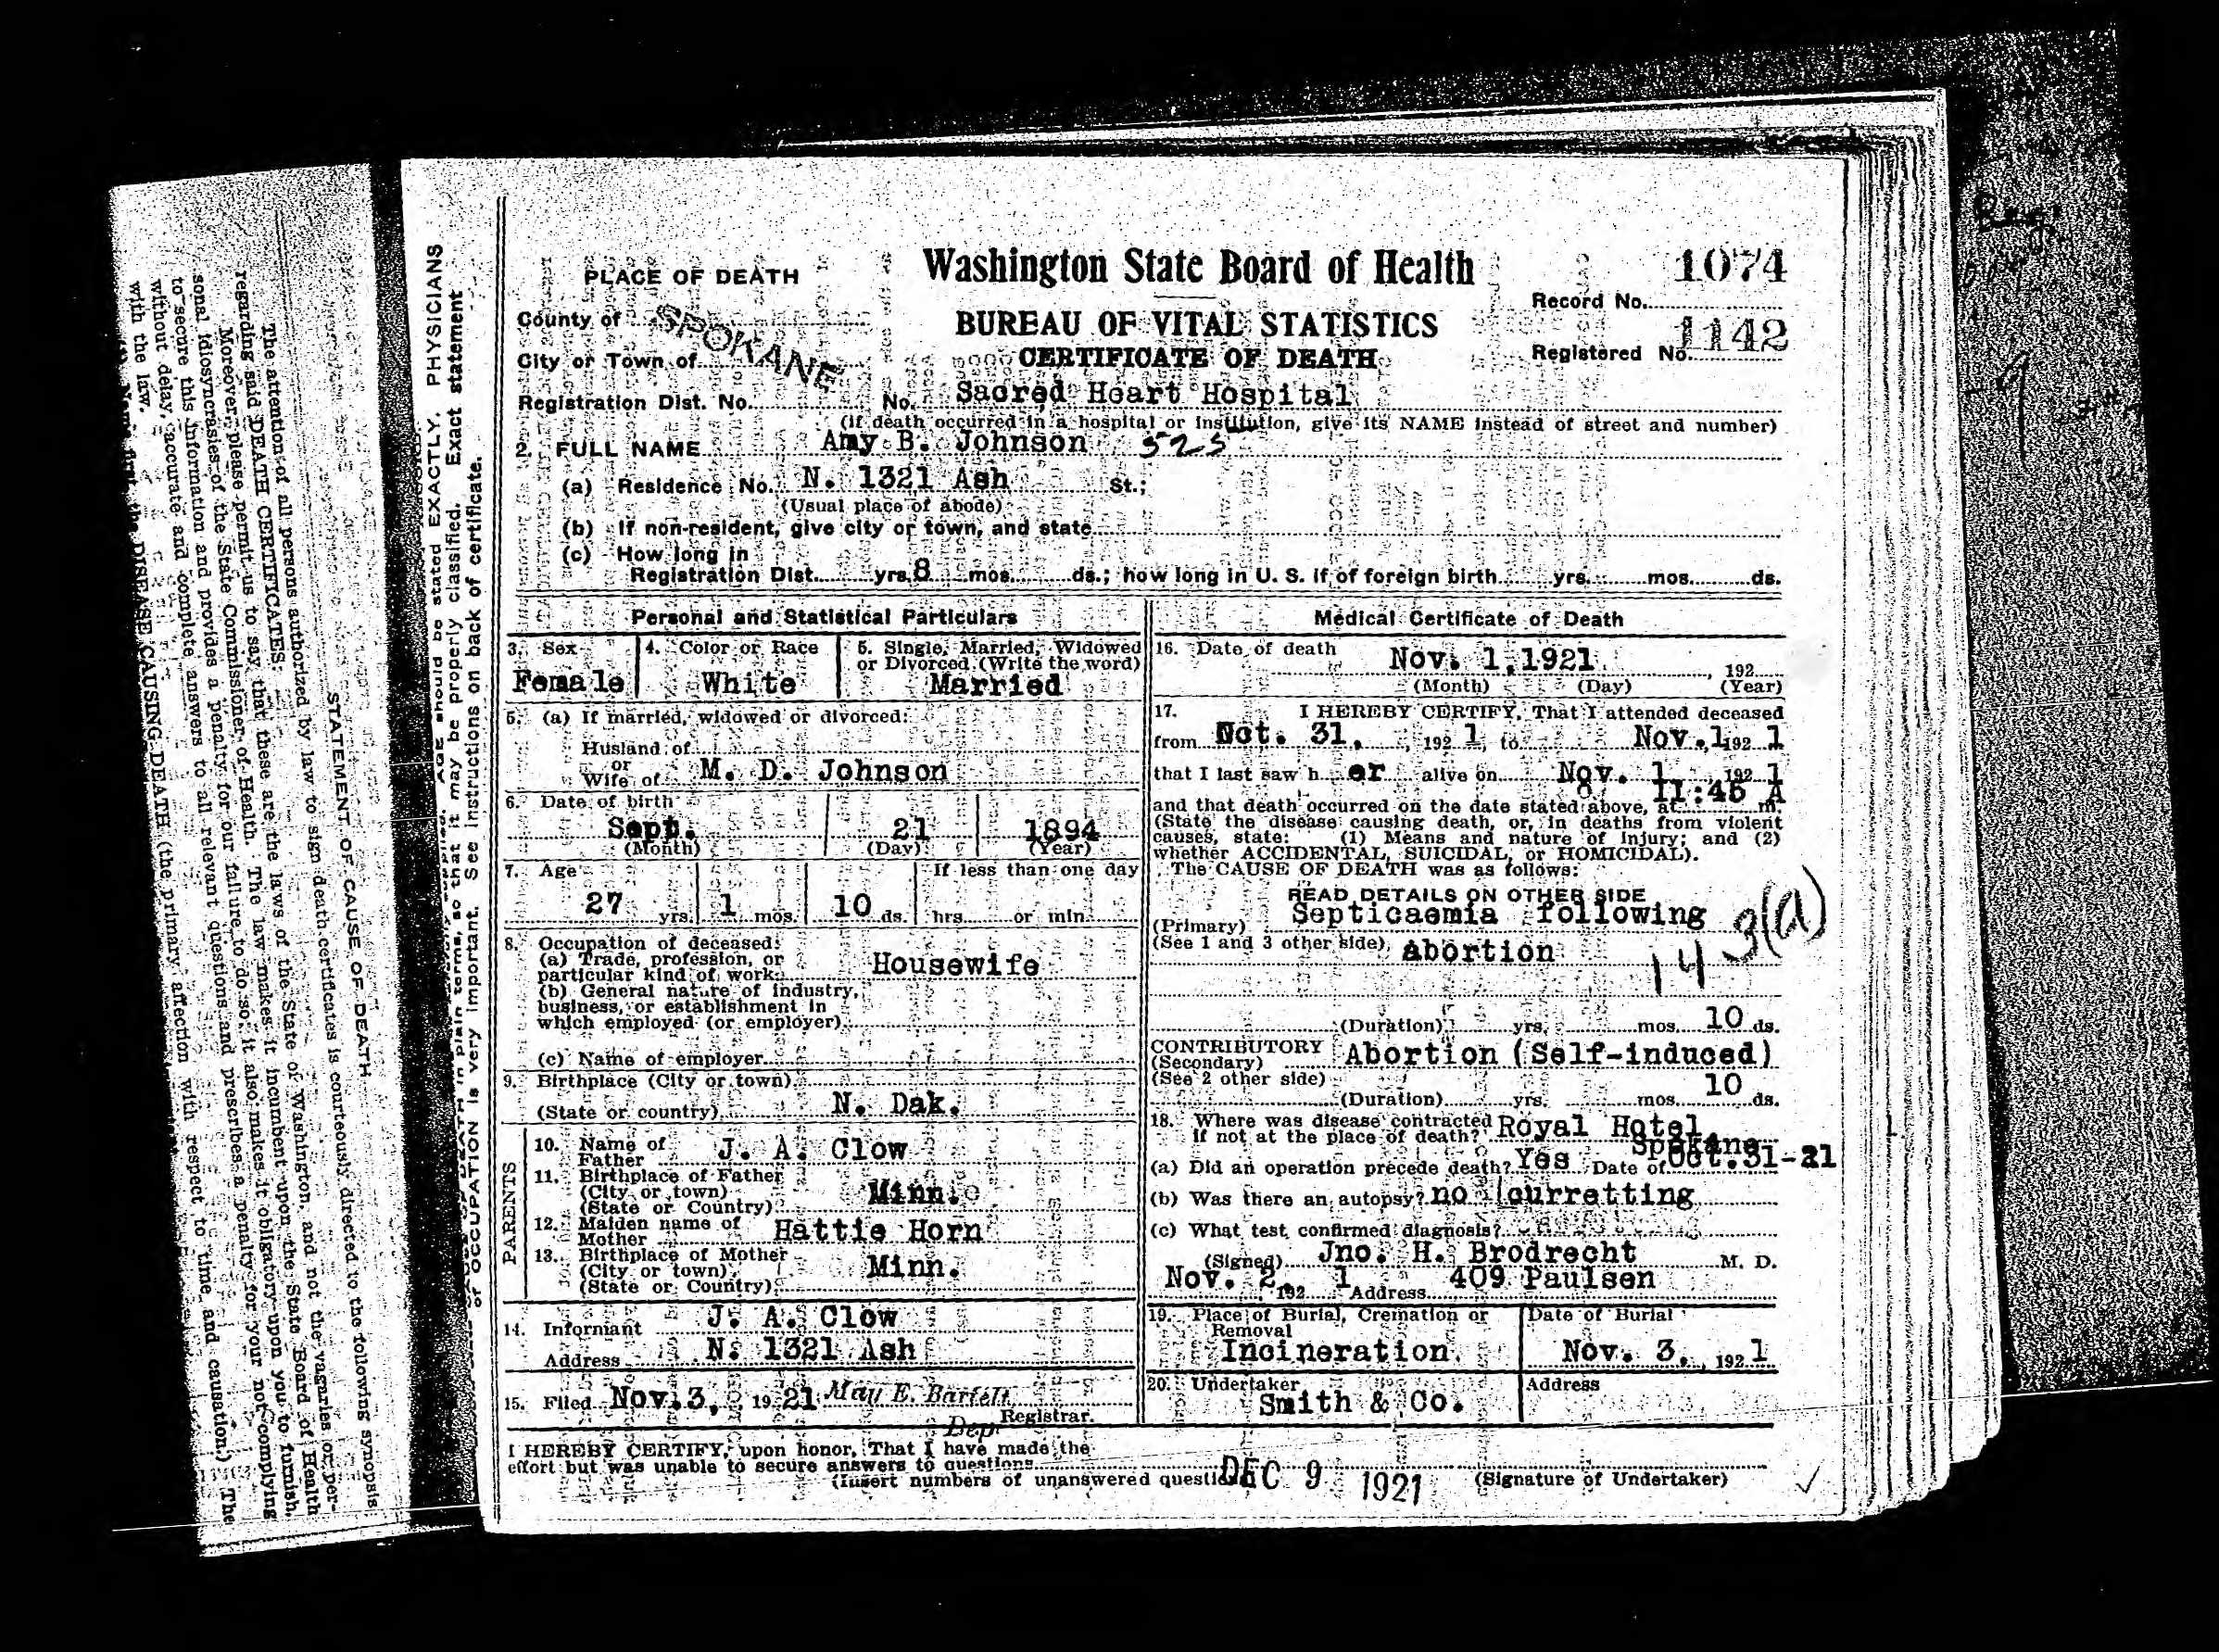 PLACE OF DEATH
County of SPOKANE
City or Town of
Registration Dist. No.
Washington State Board of Health
BUREAU OF VITAL STATISTICS
CERTIFICATE OF DEATH
1074
Record No.
1142
Registered No.
No. Sacred Heart Hospital
(If death occurred in a hospital or institution, give its NAME instead of street and number)
2. FULL NAME Amy B. Johnson 525
(a) Residence No. N. 1321 Ash St.;
(Usual place of abode)
(b) If non-resident, give city or town, and state
(c) How long in
Registration Dist. yrs. 8 mos. ds.; how long in U. S. if of foreign birth yrs. mos. ds.
Personal and Statistical Particulars
3. Sex
Female
4. Color or Race
White
5. Single, Married, Widowed
or Divorced (Write the word)
Married
5. (a) If married, widowed or divorced:
Husland of
or
Wife of M. D. Johnson
6. Date of birth
Sept. 21 1894
(Month) (Day) (Year)
7. Age If less than one day
27 yrs. 1 mos. 10 ds. hrs. or min.
8. Occupation of deceased:
(a) Trade, profession, or
particular kind of work Housewife
(b) General nature of industry,
business, or establishment in
which employed (or employer)
(c) Name of employer
9. Birthplace (City or town)
(State or country) N. Dak.
PARENTS
10. Name of
Father J. A. Clow
11. Birthplace of Father
(City or town)
(State or Country) Minn.
12. Maiden name of
Mother Hattie Horn
13. Birthplace of Mother
(City or town)
(State or Country) Minn.
14. Informant J. A. Clow
Address N. 1321 Ash
15. Filed Nov. 3, 1921 May E. Bartelt
Dep. Registrar.
Medical Certificate of Death
16. Date of death Nov. 1, 1921 , 192
(Month) (Day) (Year)
17. I HEREBY CERTIFY, That I attended deceased
from Oct. 31, , 192 1, to Nov. 1, 192 1
that I last saw h er alive on Nov. 1 , 192 1
and that death occurred on the date stated above, at 11:45 A m.
(State the disease causing death, or, in deaths from violent
causes, state: (1) Means and nature of injury; and (2)
whether ACCIDENTAL, SUICIDAL, or HOMICIDAL).
The CAUSE OF DEATH was as follows:
READ DETAILS ON OTHER SIDE
(Primary) Septicaemia following
(See 1 and 3 other side) Abortion
143(a)
(Duration) yrs. mos. 10 ds.
CONTRIBUTORY Abortion (Self-induced)
(Secondary)
(See 2 other side)
(Duration) yrs. mos. 10 ds.
18. Where was disease contracted
if not at the place of death? Royal Hotel
Spokane
(a) Did an operation precede death? Yes Date of Oct. 31-21
(b) Was there an autopsy? no curretting
(c) What test confirmed diagnosis?
(Signed) Jno. H. Brodrecht M. D.
Nov. 2, 192 1 Address 409 Paulsen
19. Place of Burial, Cremation or
Removal
Incineration
Date of Burial
Nov. 3, , 192 1
20. Undertaker
Smith & Co.
Address
I HEREBY CERTIFY, upon honor, That I have made the
effort but was unable to secure answers to questions
(Insert numbers of unanswered questi
DEC 9 1921
(Signature of Undertaker)
PHYSICIANS
AGE should be stated EXACTLY.
so that it may be properly classified. Exact statement
of OCCUPATION is very important. See instructions on back of certificate.
STATEMENT OF CAUSE OF DEATH
The attention of all persons authorized by law to sign death certificates is courteously directed to the following synopsis
regarding said DEATH CERTIFICATES.
Moreover, please permit us to say that these are the laws of the State of Washington, and not the vagaries or per-
sonal idiosyncrasies of the State Commissioner of Health. The law makes it incumbent upon the State Board of Health
to secure this information and provides a penalty for our failure to do so; it also makes it obligatory upon you to furnish,
without delay, accurate and complete answers to all relevant questions and prescribes a penalty for your not complying
with the law.
the DISEASE CAUSING DEATH (the primary affection with respect to time and causation.) The